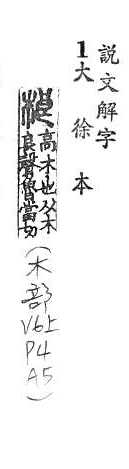 説文解字
1大徐本
桹高木也从木
良聲魯當切
(木部V6上P4A5)